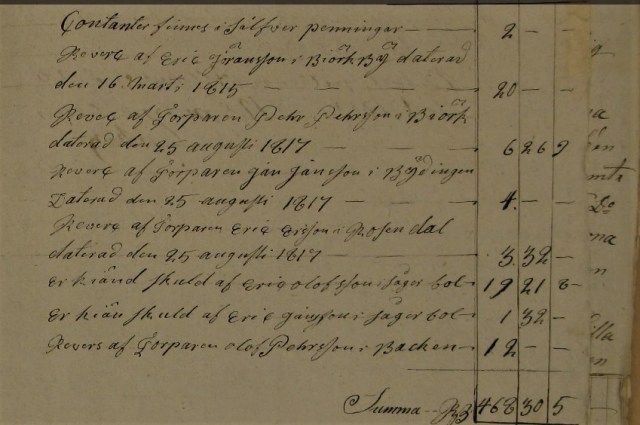 Contanter finnes i Silfver penningar — 2 — —
Revers af Eric Göransson i Biörkbÿ daterad
den 16 Marti 1815 — — — 20 — —
Revers af Torparen Pehr Pehrsson i Biörk
daterad den 25 augusti 1817 — — — 6 26 9
Revers af Torparen Jan Jansson i Rÿdingen
Daterad den 25 augusti 1817 — — — 4 — —
Revers af Torparen Eric Ersson i Rosendal
daterad den 25 augusti 1817 — — — 3 32 —
Er kiänd skuld af Eric olofsson i Jäger bol — 19 21 8
Er kiän skuld af Eric Jansson i Jäger bol — 1 32 —
Revers af Torparen olof Pehrsson i Backen — 12 — —
Summa — 468 30 5